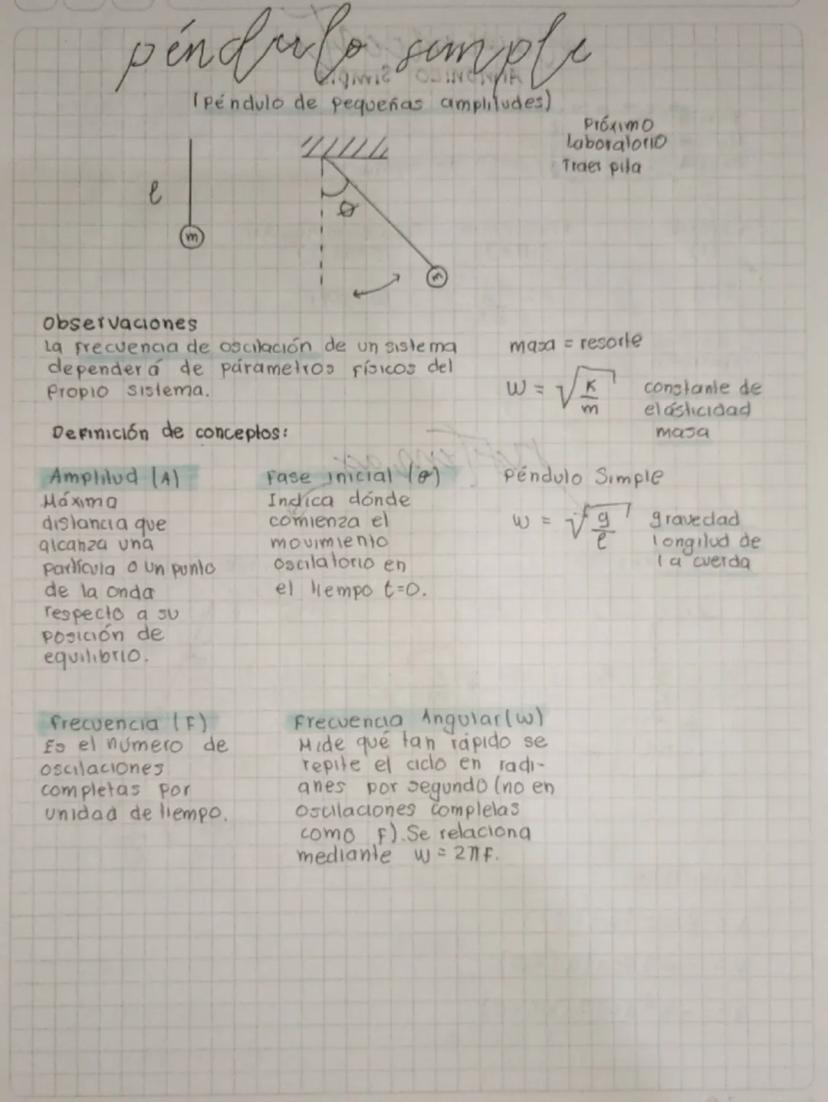 péndulo simple
(péndulo de pequeñas amplitudes)
Próximo
Laboratorio
Traer pila
l
m
θ
m
Observaciones
La frecuencia de oscilación de un sistema
dependerá de párametros físicos del
Propio sistema.
masa = resorte
W = √(K/m) constante de
elásticidad
masa
Definición de conceptos:
Amplitud (A)
Máxima
distancia que
alcanza una
partícula o un punto
de la onda
respecto a su
posición de
equilibrio.
Fase inicial (θ)
Indica dónde
comienza el
movimiento
oscilatorio en
el tiempo t=0.
Péndulo Simple
W = √(g/l) gravedad
longitud de
la cuerda
Frecuencia (F)
Es el número de
oscilaciones
completas por
unidad de tiempo.
Frecuencia Angular (W)
Mide qué tan rápido se
repite el ciclo en radi-
anes por segundo (no en
oscilaciones completas
como F). Se relaciona
mediante W = 2πF.